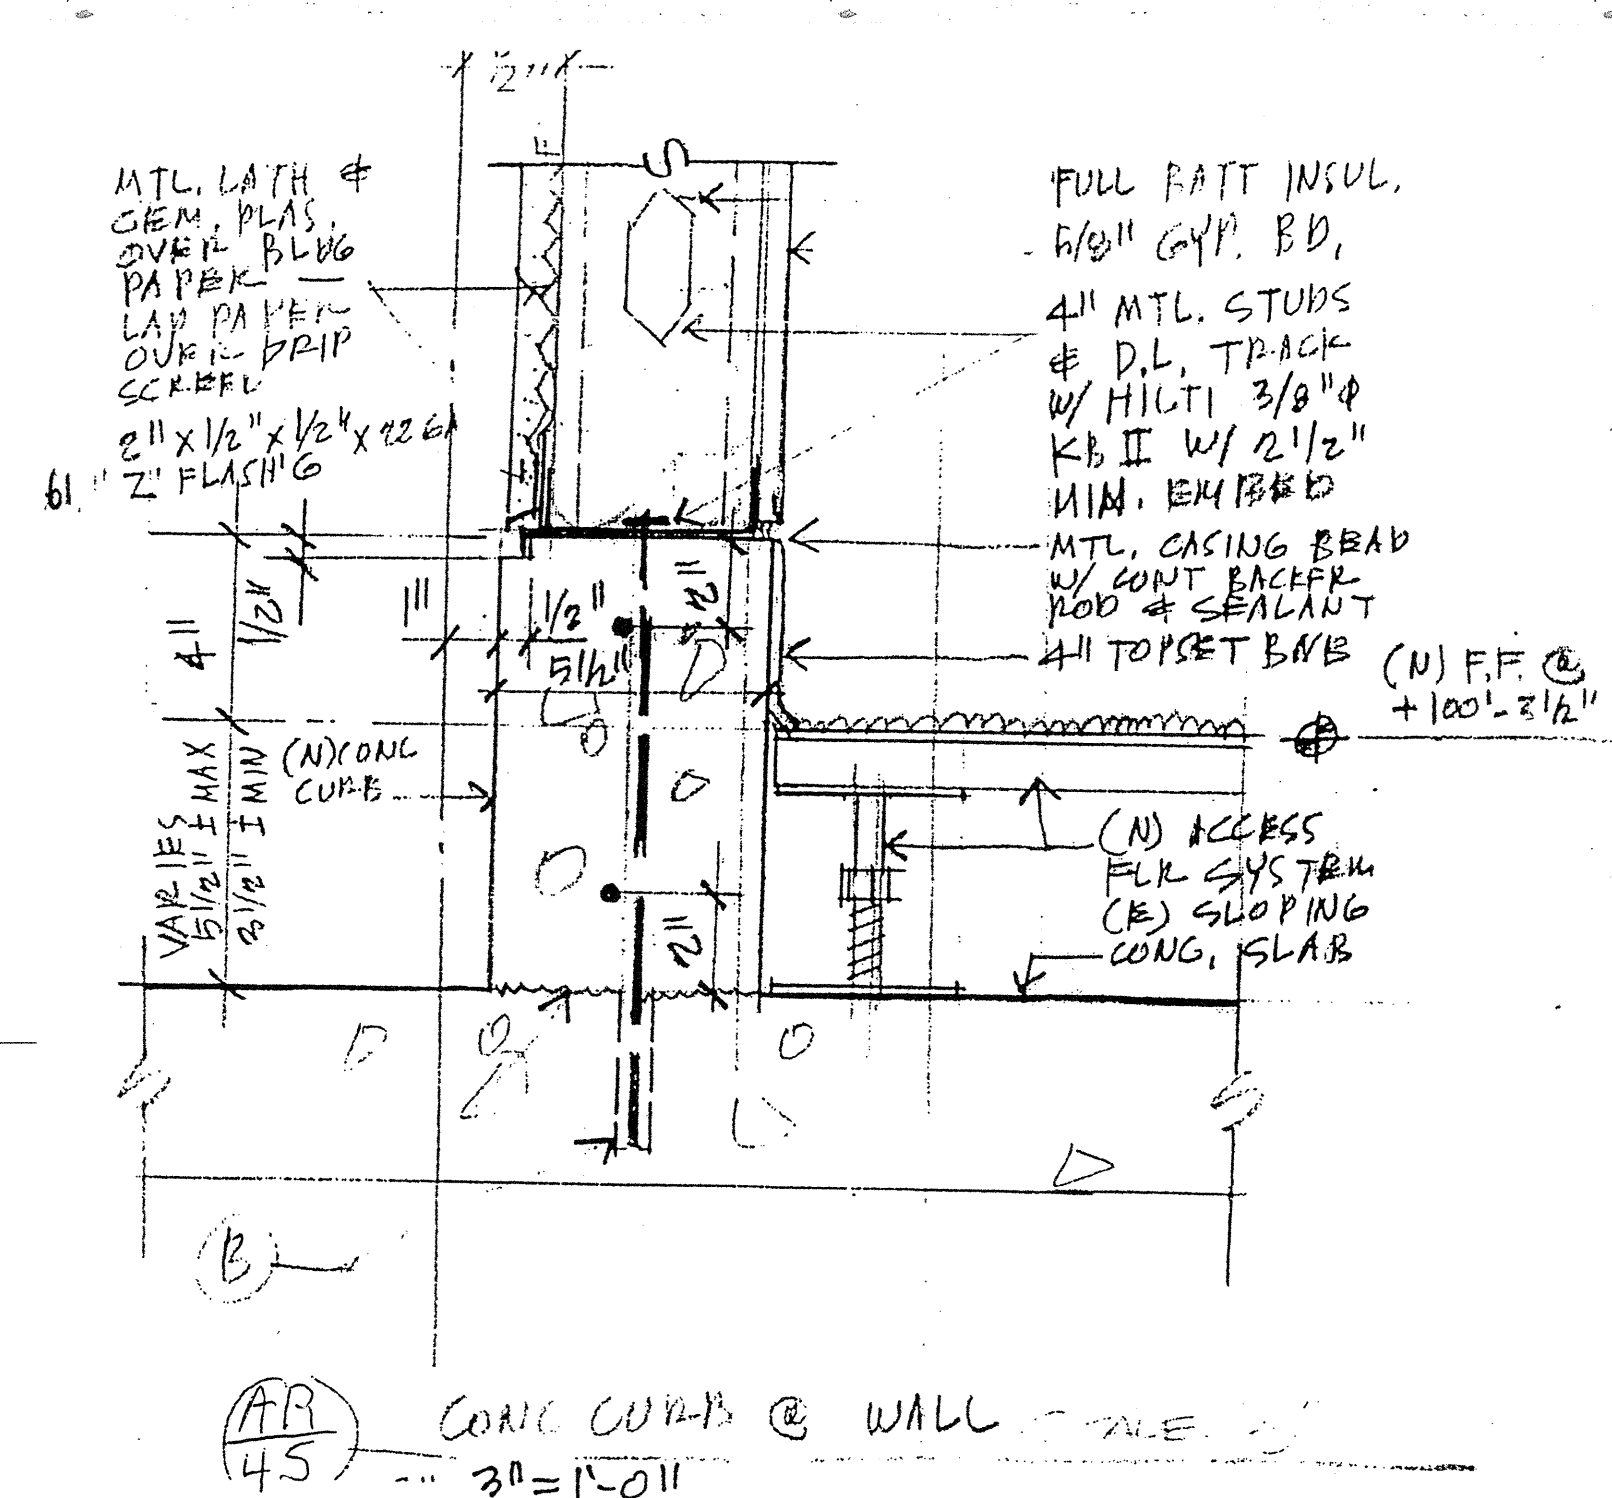 1/2"
F
MTL. LATH &
CEM. PLAS.
OVER BLDG
PAPER —
LAP PAPER
OVER DRIP
SCREED
2" X 1/2" X 1/2" X 22 GA
61. "Z" FLASH'G
FULL BATT INSUL.
5/8" GYP. BD.
4" MTL. STUDS
& D.L. TRACK
W/ HILTI 3/8"Φ
KB II W/ 2 1/2"
MIN. EMBED
MTL. CASING BEAD
W/ CONT BACKER
ROD & SEALANT
4" TOPSET BASE
(N) F.F. @
+100'-3 1/2"
4"
1/2"
1"
1/2"
5 1/2"
2"
(N) CONC
CURB
VARIES
5 1/2" ± MAX
3 1/2" ± MIN
2"
(N) ACCESS
FLR SYSTEM
(E) SLOPING
CONC. SLAB
B
AR
45
CONC CURB @ WALL
3"=1'-0"